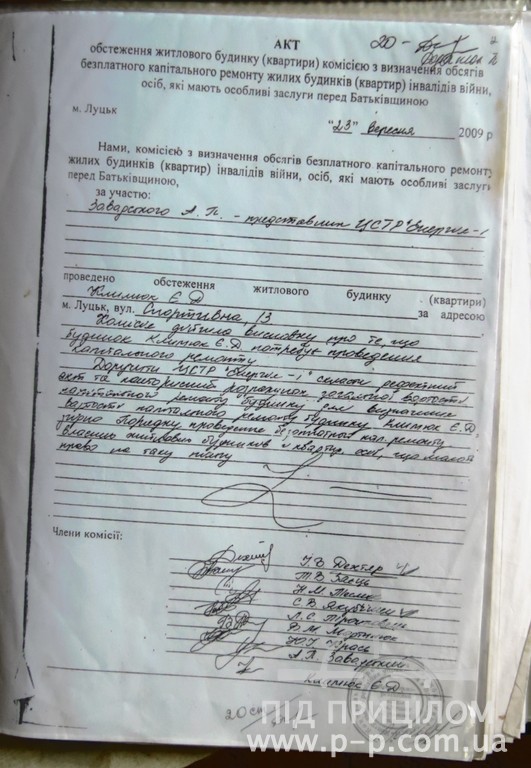 АКТ
обстеження житлового будинку (квартири) комісією з визначення обсягів
безплатного капітального ремонту жилих будинків (квартир) інвалідів війни,
осіб, які мають особливі заслуги перед Батьківщиною
20 -
м. Луцьк
"23" вересня 2009 р
Нами, комісією з визначення обсягів безплатного капітального ремонту
жилих будинків (квартир) інвалідів війни, осіб, які мають особливі заслуги
перед Батьківщиною,
за участю:
Заварського А. П. - представник ЦСТР "Енергія-1
проведено обстеження житлового будинку (квартири)
Климюк Є.Д
м. Луцьк, вул. Спортивна 13 за адресою
Комісія дійшла висновку про те, що
будинок Климюк Є.Д потребує проведення
капітального ремонту
Доручити ЦСТР "Енергія-1" скласти дефектний
акт та кошторисний розрахунок загальної вартості
капітального ремонту будинку для визначення
вартості капітального ремонту будинку Климюк Є.Д,
згідно Порядку проведення безплатного кап. ремонту
власних житлових будинків і квартир осіб, що мають
право на таку пільгу
Члени комісії:
І.В Дехтяр
Т.В Заєць
Н.М
С.В
Л.Є
В.М Мартинюк
А.П. Заварський
Климюк Є.Д
ПІД ПРИЦІЛОМ
www.p-p.com.ua